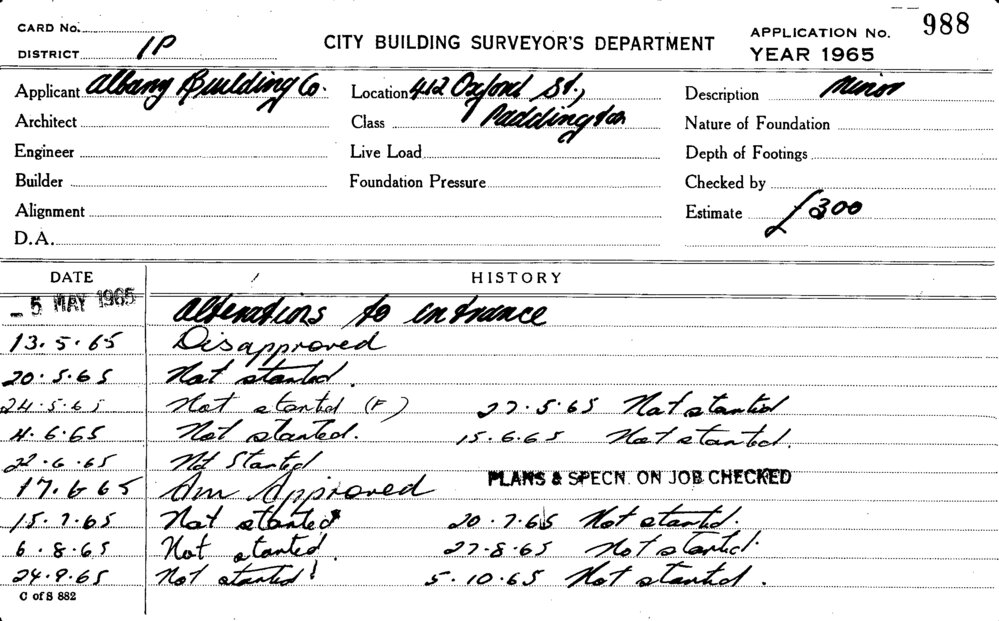 CARD No.
DISTRICT 1P
CITY BUILDING SURVEYOR'S DEPARTMENT
APPLICATION No. 988
YEAR 1965
Applicant Albany Building Co.
Location 412 Oxford St.,
Description Minor
Architect
Class Paddington
Nature of Foundation
Engineer
Live Load
Depth of Footings
Builder
Foundation Pressure
Checked by
Alignment
Estimate £300
D.A.
DATE
HISTORY
- 5 MAY 1965 Alterations to entrance
13.5.65 Disapproved
20.5.65 Not started.
24.5.65 Not started (F) 27.5.65 Not started
4.6.65 Not started. 15.6.65 Not started.
22.6.65 Not Started
17.6.65 Am Approved PLANS & SPECN. ON JOB CHECKED
15.7.65 Not started 20.7.65 Not started.
6.8.65 Not started. 27.8.65 Not started.
24.9.65 Not started! 5.10.65 Not started.
C of S 882